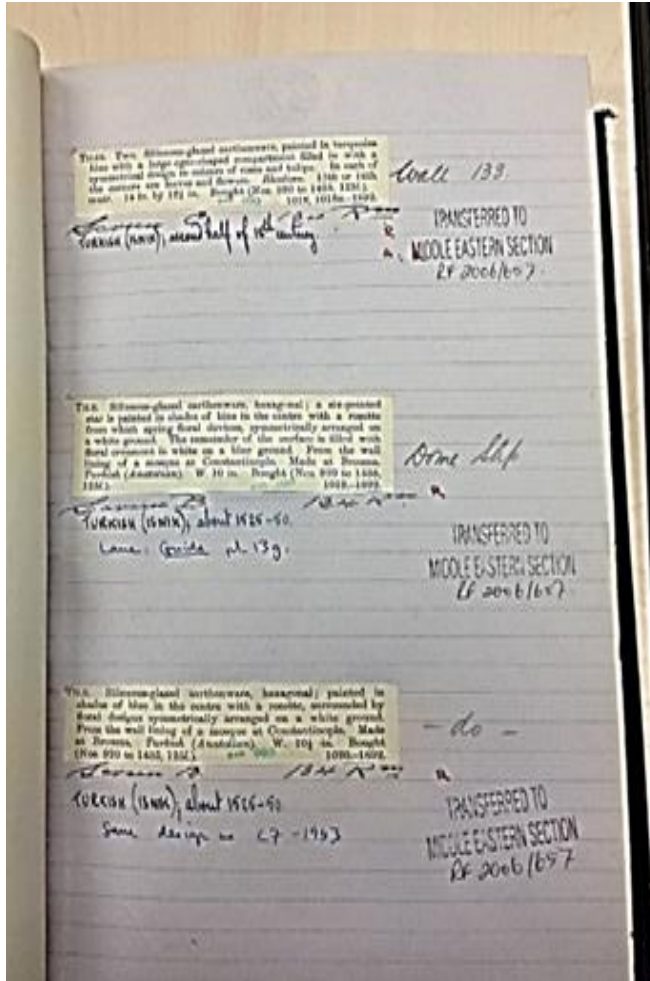 TILES. Two. Siliceous-glazed earthenware, painted in turquoise
blue with a large ogee-shaped compartment filled in with a
symmetrical design in colours of roses and tulips. In each of
the corners are leaves and flowers. 15th or 16th
centr. 14 in. by 12½ in. Bought (Nos. 920 to 1455, 125l.).
Wall 133
TURKISH (ISNIK), second half of 16th century.
TRANSFERRED TO
MIDDLE EASTERN SECTION
RF 2006/657
TILE. Siliceous-glazed earthenware, hexagonal; a six-pointed
star is painted in shades of blue in the centre with a rosette
from which spring floral devices, symmetrically arranged on
a white ground. The remainder of the surface is filled with
floral ornament in white on a blue ground. From the wall
lining of a mosque at Constantinople. Made at Broussa,
Turkish (Anatolian). W. 10 in. Bought (Nos. 920 to 1455,
125l.). 1019.-1892.
Dome
TURKISH (ISNIK), about 1525-50.
Lane: Guide pl. 13g.
TRANSFERRED TO
MIDDLE EASTERN SECTION
RF 2006/657
TILE. Siliceous-glazed earthenware, hexagonal; painted in
shades of blue in the centre with a rosette, surrounded by
floral designs symmetrically arranged on a white ground.
From the wall lining of a mosque at Constantinople. Made
at Broussa, (Anatolian). W. 10¼ in. Bought
(Nos 920 to 1455, 125l.). 1020.-1892.
- do -
TURKISH (ISNIK), about 1525-50
Same design as C7-1953
TRANSFERRED TO
MIDDLE EASTERN SECTION
RF 2006/657